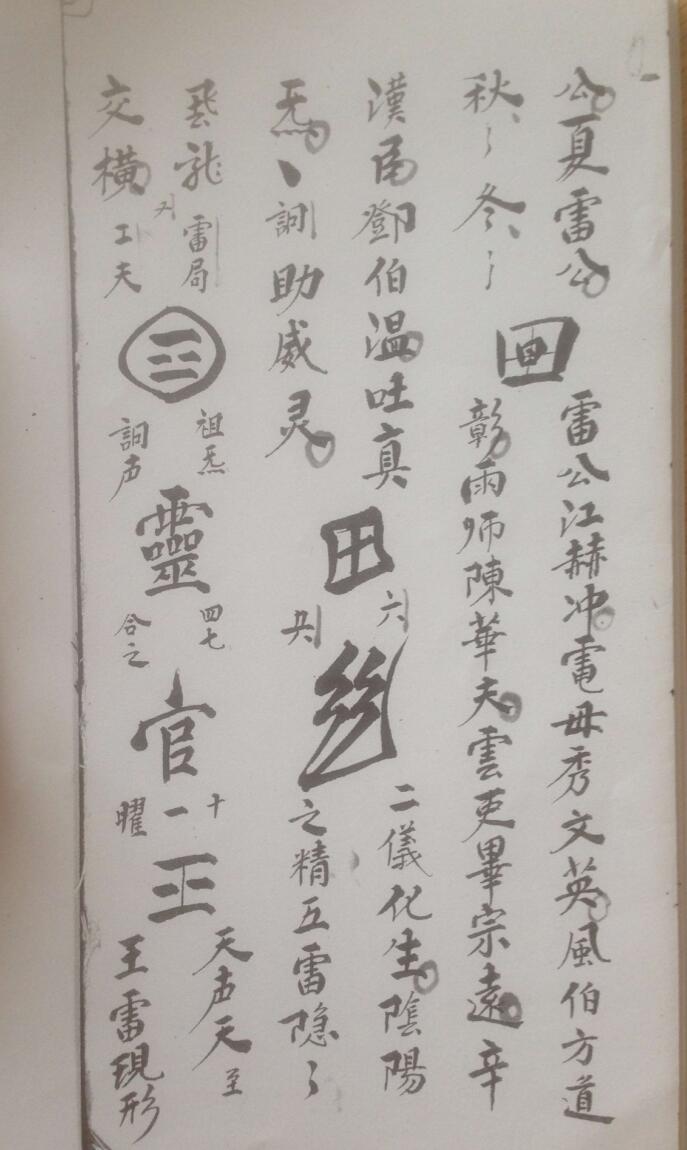 公夏雷公
秋〻冬〻
雷公江赫冲電毋秀文英風伯方道
彰雨师陳華夫雲吏畢宗遠辛
漢臣鄧伯温吐真
炁、詞助威灵
田
六
二儀化生陰陽
之精五雷隐〻
飛龍
交横
雷局
工夫
祖炁
詞声
靈
四七
合之
官
十一
曜
王
天声天至
王雷現形